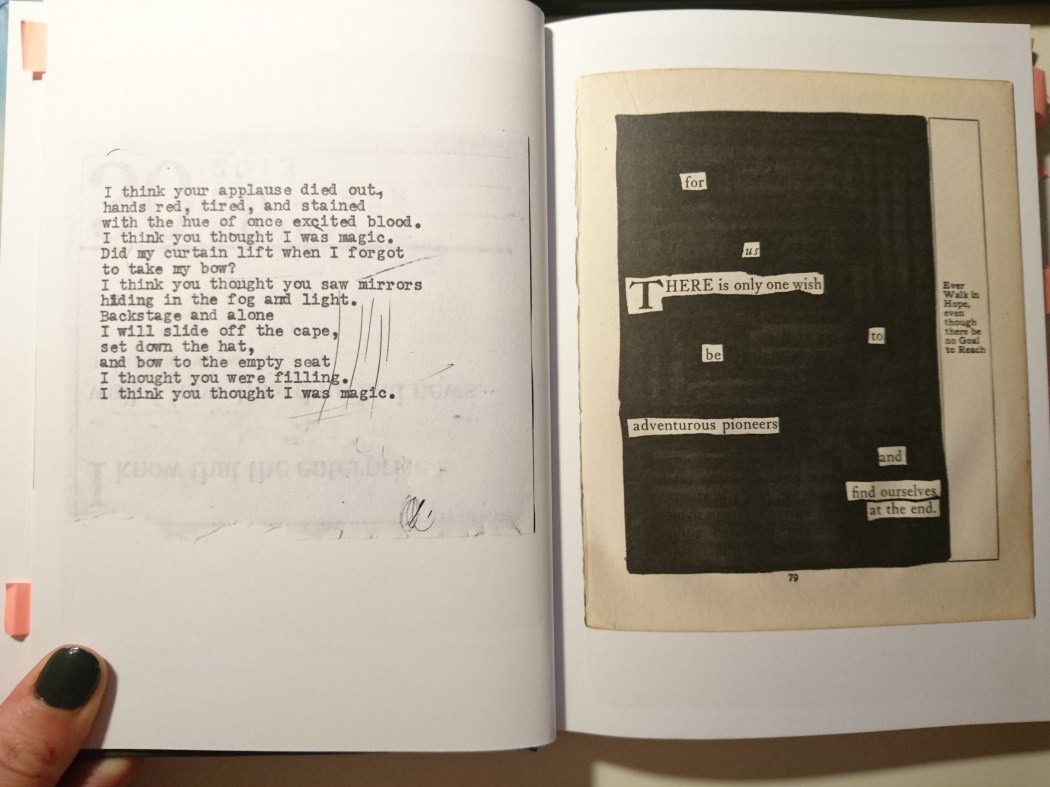 I think your applause died out,
hands red, tired, and stained
with the hue of once excited blood.
I think you thought I was magic.
Did my curtain lift when I forgot
to take my bow?
I think you thought you saw mirrors
hiding in the fog and light.
Backstage and alone
I will slide off the cape,
set down the hat,
and bow to the empty seat
I thought you were filling.
I think you thought I was magic.
for
us
THERE is only one wish
to
be
adventurous pioneers
and
find ourselves
at the end.
Ever
Walk in
Hope,
even
though
there be
no Goal
to Reach
79